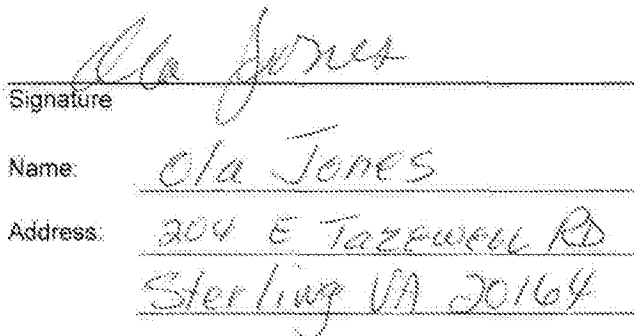 Ola Jones
Signature
Name: Ola Jones
Address: 204 E Tazewell Rd
Sterling VA 20164